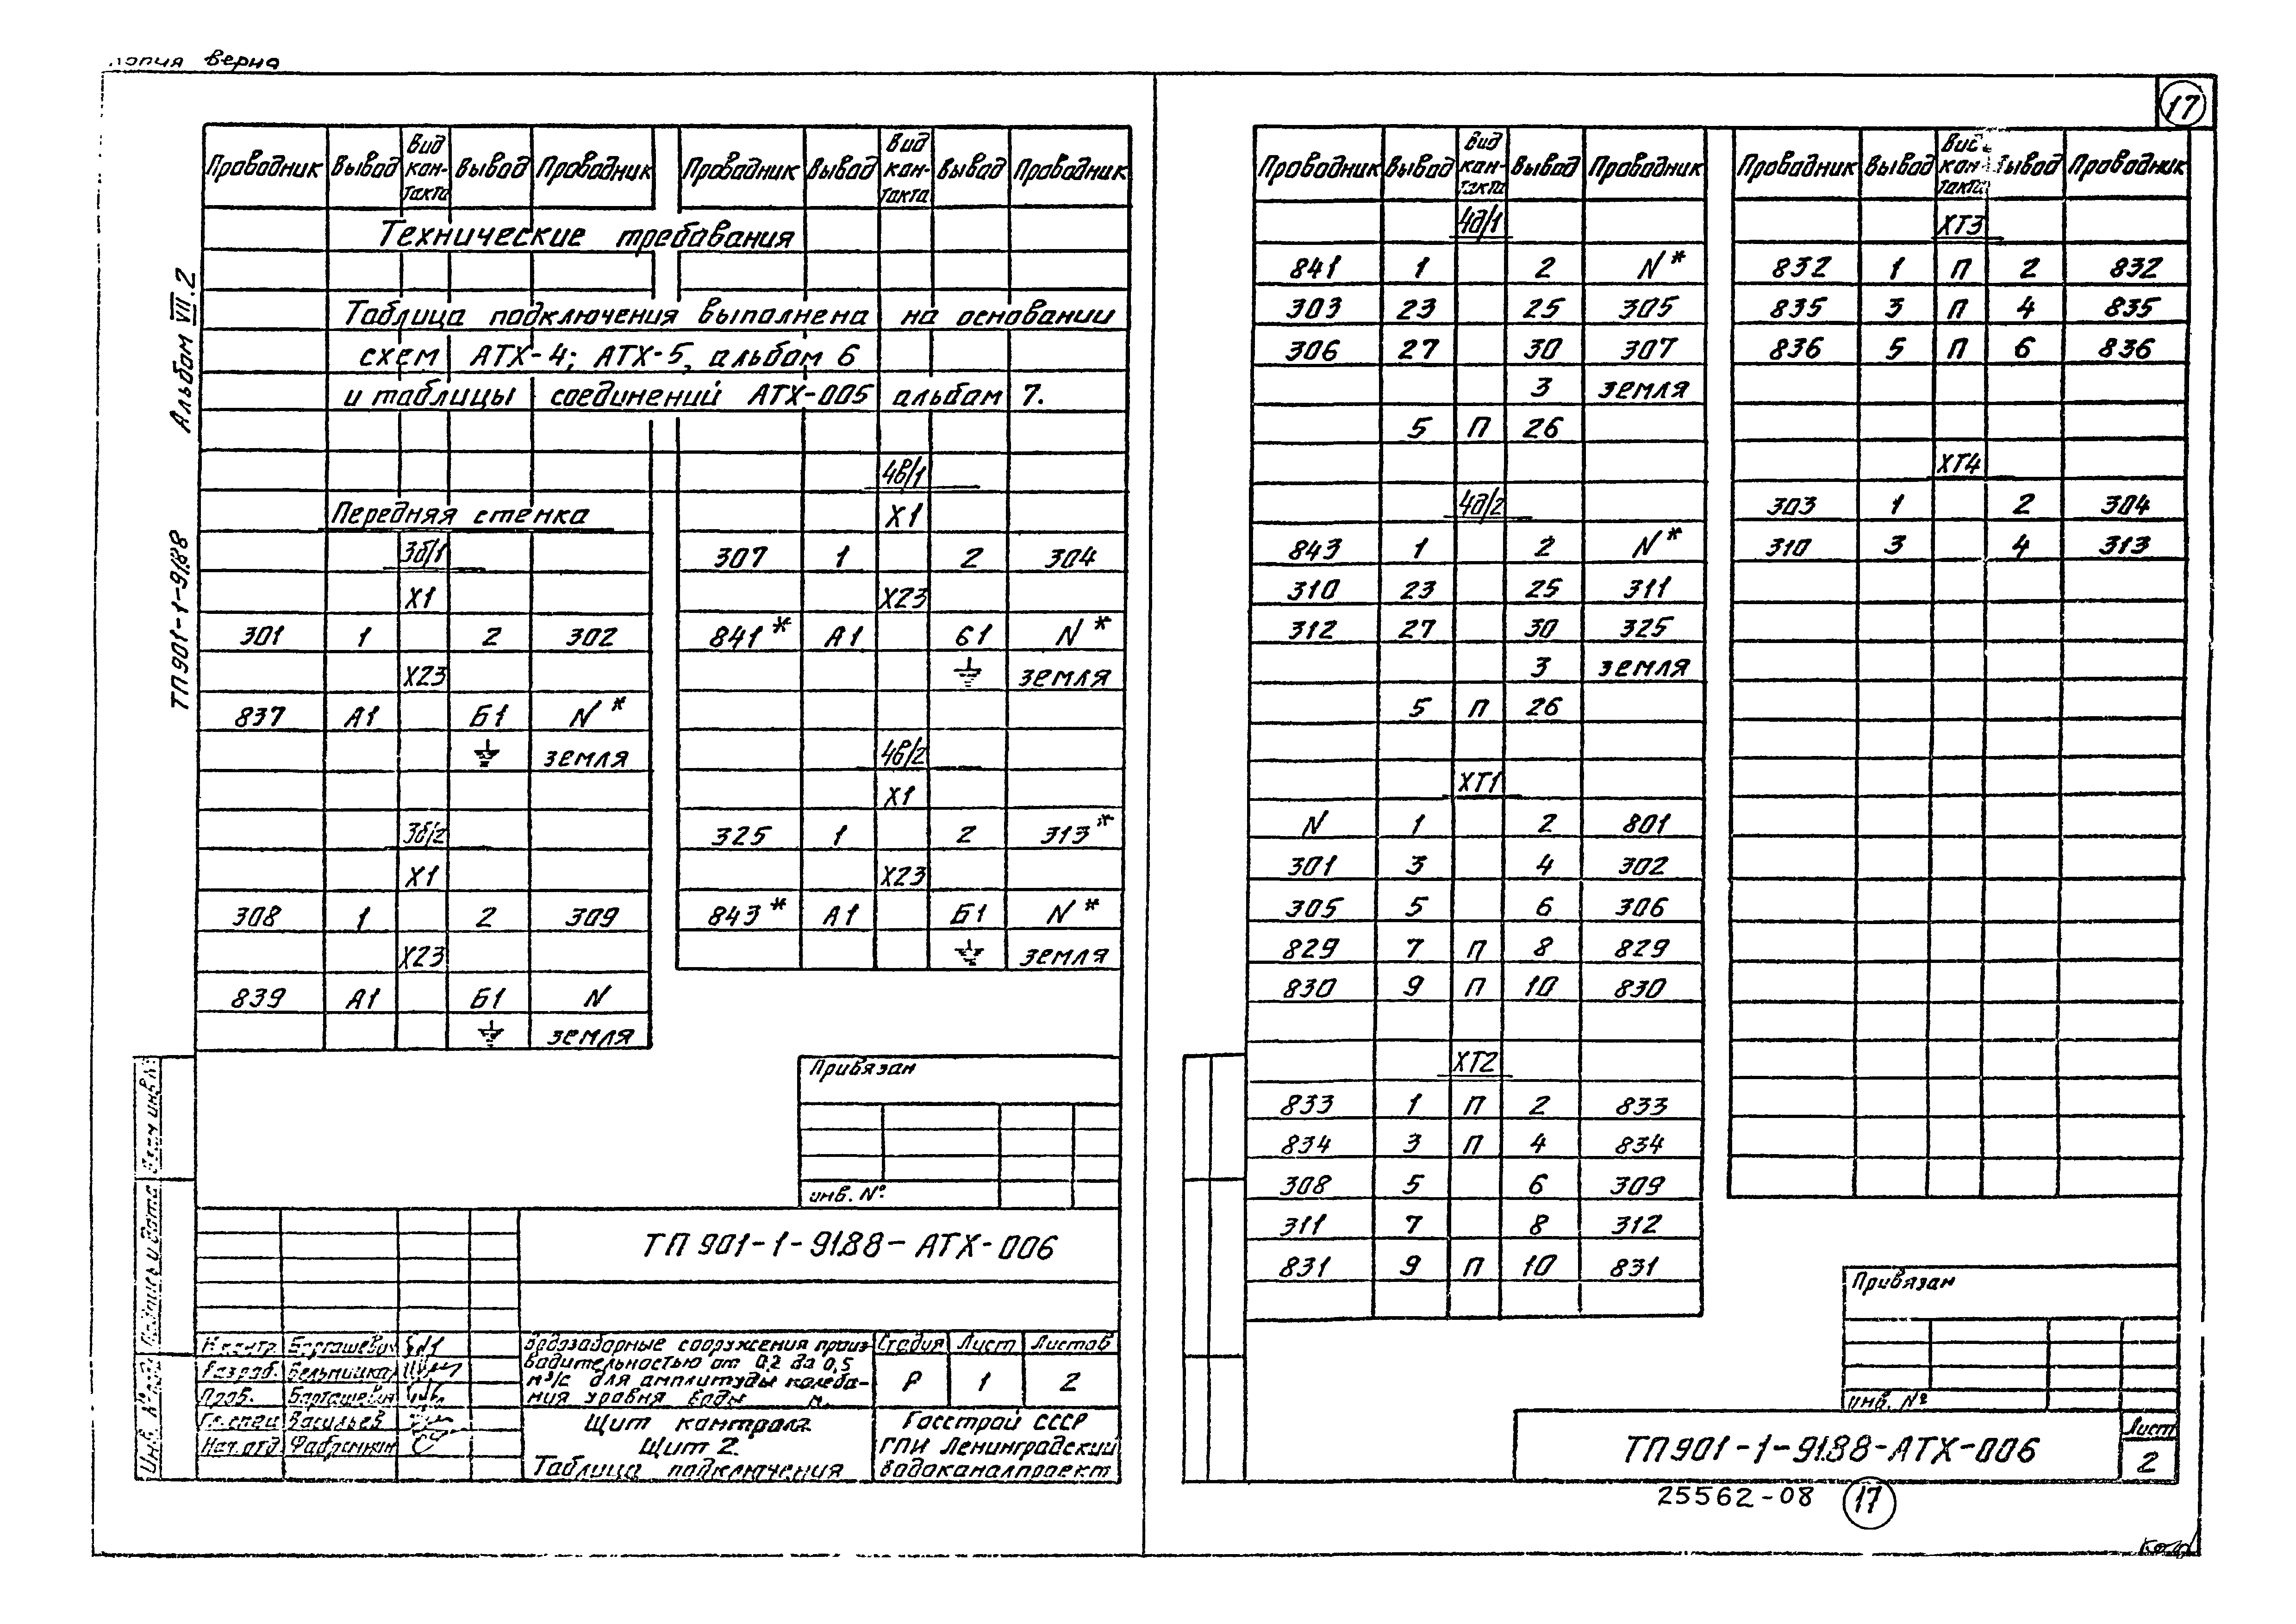 копия верна
17
Альбом VII.2
ТП901-1-91.88
Проводник Вывод Вид кон-такта Вывод Проводник
Технические требования
Таблица подключения выполнена на основании
схем АТХ-4; АТХ-5, альбом 6
и таблицы соединений АТХ-005 альбом 7.
Передняя стенка
3б/1
Х1
301 1 2 302
Х23
837 А1 Б1 N*
⏚ земля
3б/2
Х1
308 1 2 309
Х23
839 А1 Б1 N
⏚ земля
Проводник Вывод Вид кон-такта Вывод Проводник
4в/1
Х1
307 1 2 304
Х23
841* А1 Б1 N*
⏚ земля
4в/2
Х1
325 1 2 313*
Х23
843* А1 Б1 N*
⏚ земля
Привязан
инв. №
ТП 901-1-91.88-АТХ-006
Н.контр.
Разраб.
Пров.
Гл.спец. Васильев
Нач.отд.
Водозаборные сооружения произ-
водительностью от 0,2 до 0,5
м³/с для амплитуды колеба-
ния уровня воды м.
Стадия Лист Листов
Р 1 2
Щит контроля
Щит 2
Таблица подключения
Госстрой СССР
ГПИ Ленинградский
Водоканалпроект
Взам инв. №
Подпись и дата
Инв. №
Проводник Вывод Вид кон-такта Вывод Проводник
4д/1
841 1 2 N*
303 23 25 305
306 27 30 307
3 земля
5 П 26
4д/2
843 1 2 N*
310 23 25 311
312 27 30 325
3 земля
5 П 26
ХТ1
N 1 2 801
301 3 4 302
305 5 6 306
829 7 П 8 829
830 9 П 10 830
ХТ2
833 1 П 2 833
834 3 П 4 834
308 5 6 309
311 7 8 312
831 9 П 10 831
Проводник Вывод Вид кон-такта Вывод Проводник
ХТ3
832 1 П 2 832
835 3 П 4 835
836 5 П 6 836
ХТ4
303 1 2 304
310 3 4 313
Привязан
инв. №
ТП901-1-91.88-АТХ-006
Лист
2
25562-08 17